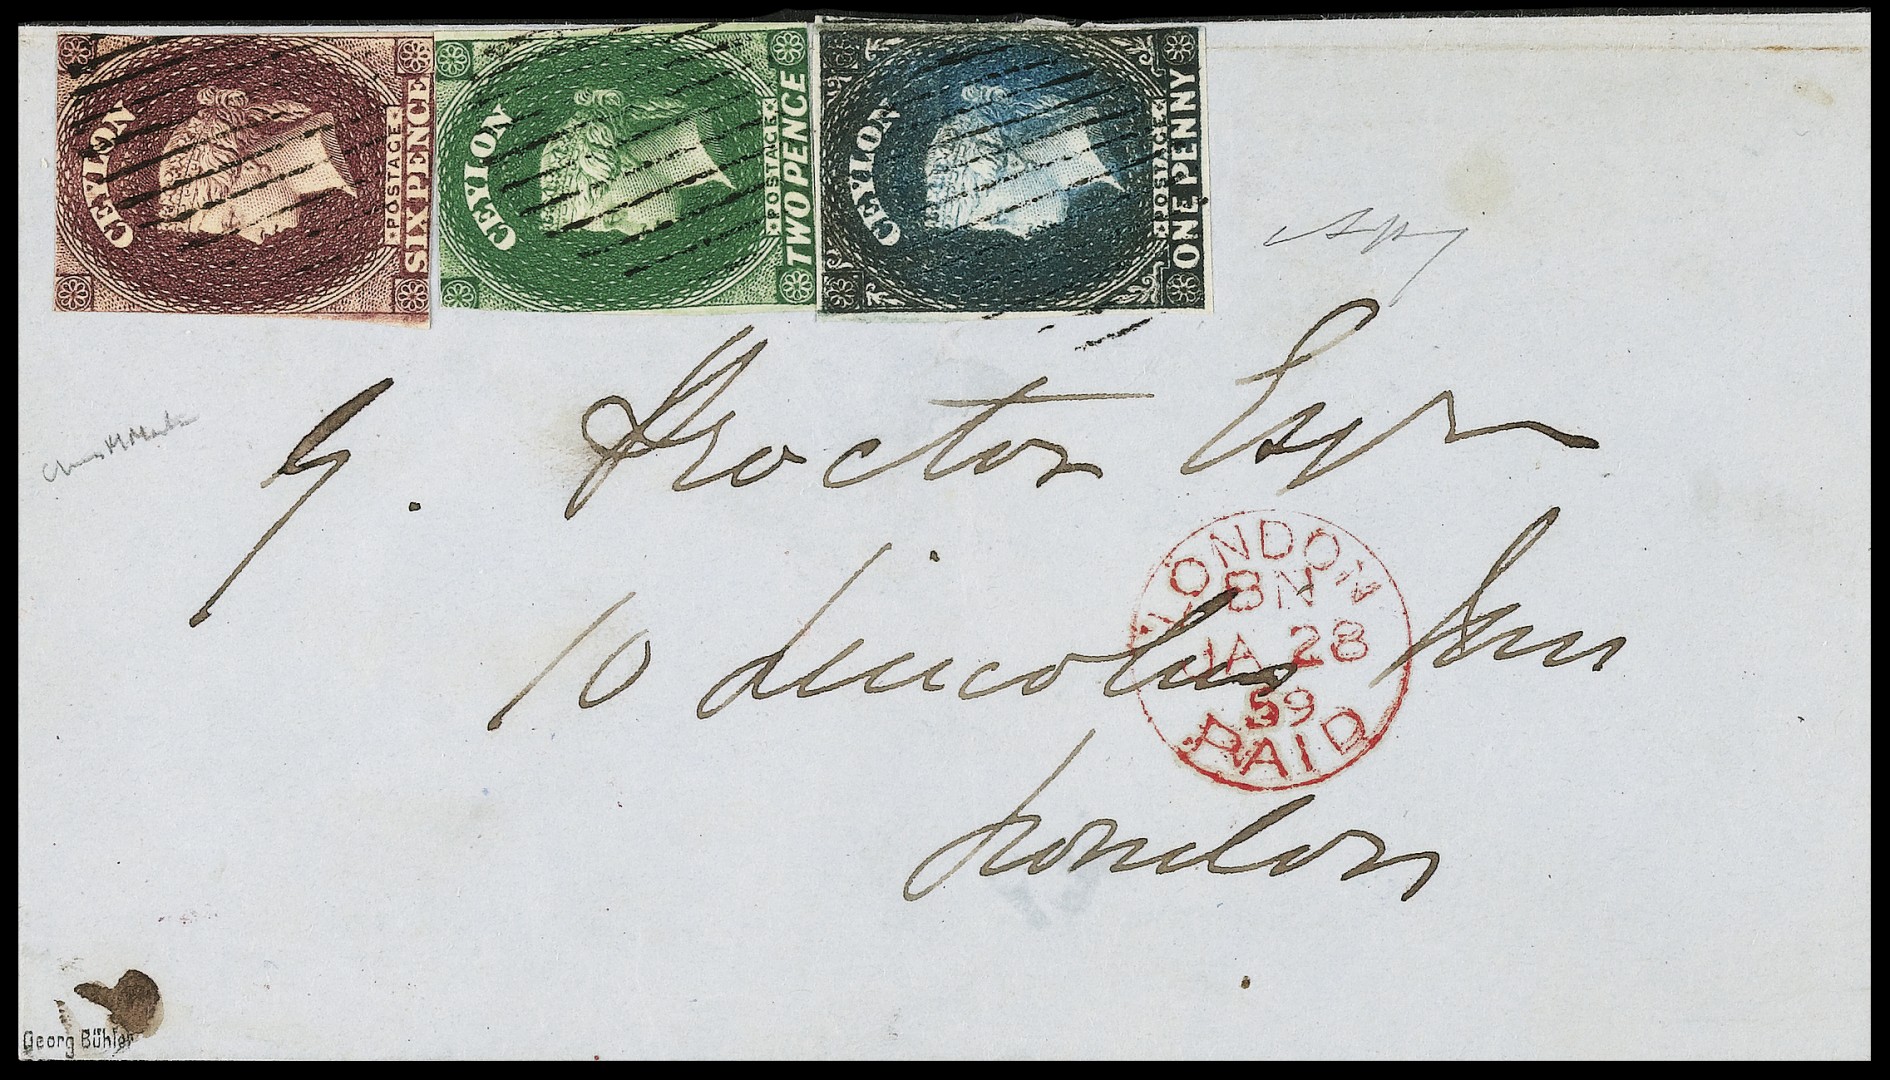 CEYLON
POSTAGE
SIX PENCE
CEYLON
POSTAGE
TWO PENCE
CEYLON
POSTAGE
ONE PENNY
G. Proctor Esqr
10 Lincolns Inn
London
LONDON
8N
JA 28
59
PAID
Georg Bühler